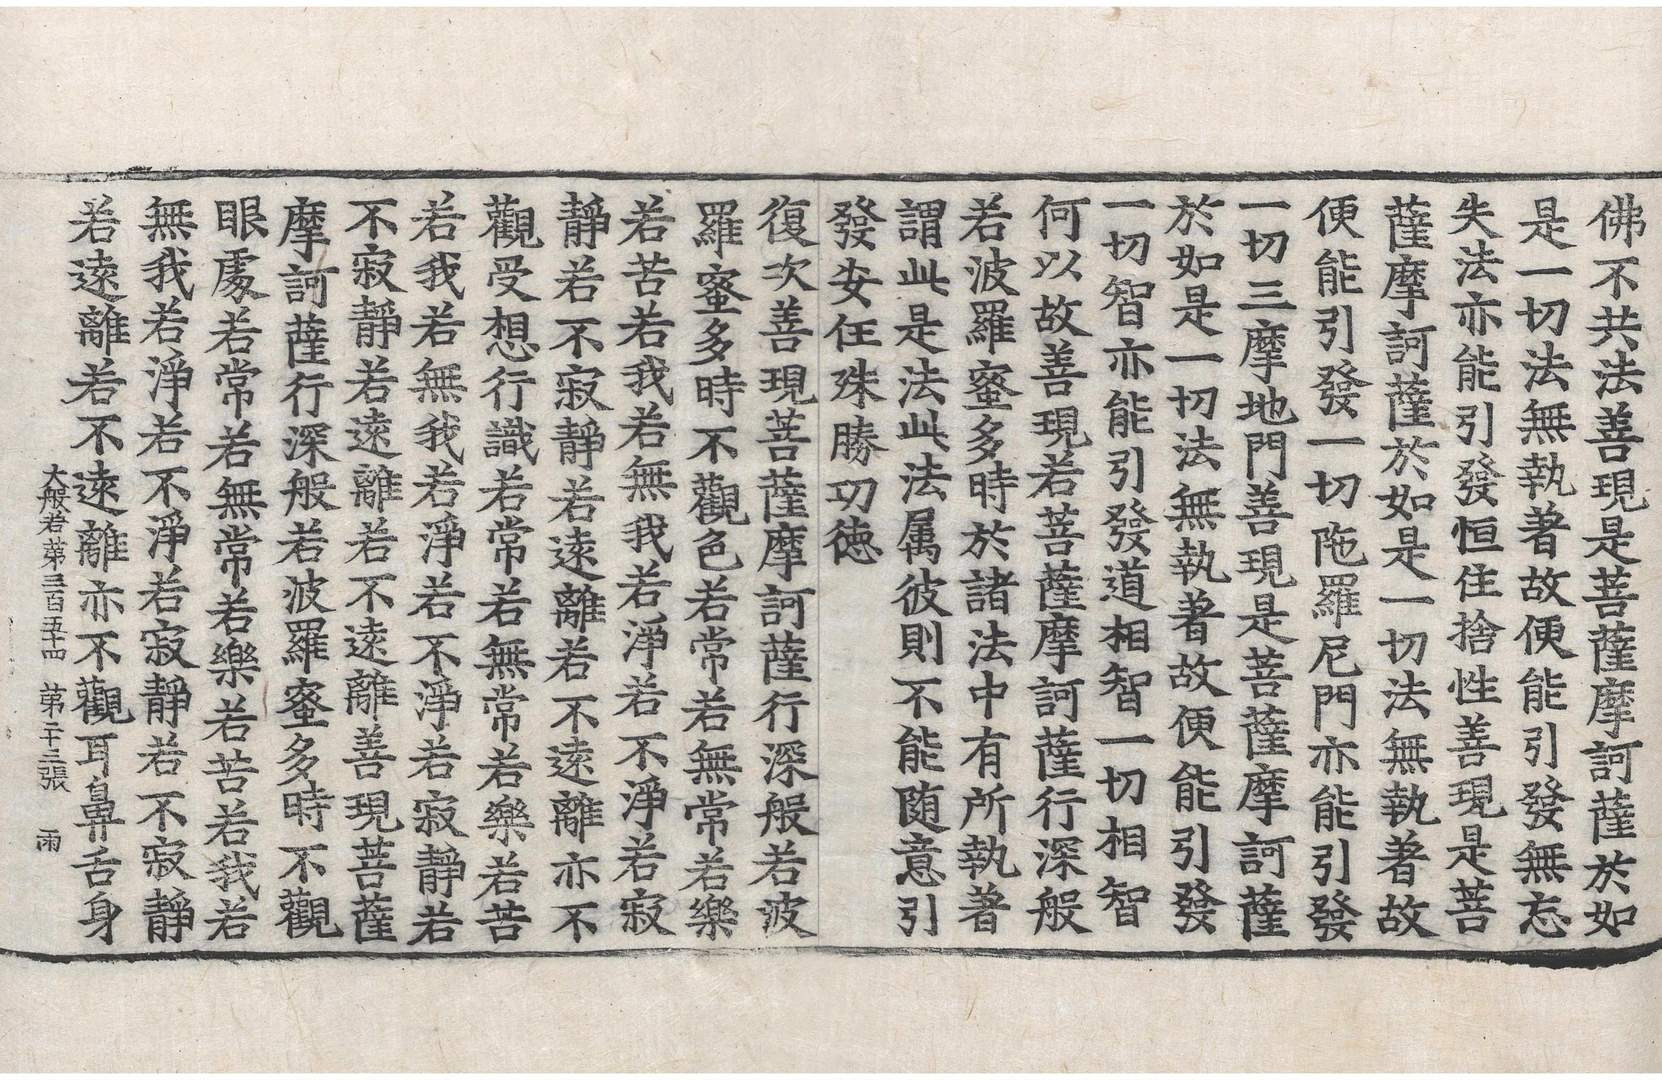 佛不共法善現是菩薩摩訶薩於如
是一切法無執著故便能引發無忘
失法亦能引發恒住捨性善現是菩
薩摩訶薩於如是一切法無執著故
便能引發一切陁羅尼門亦能引發
一切三摩地門善現是菩薩摩訶薩
於如是一切法無執著故便能引發
一切智亦能引發道相智一切相智
何以故善現若菩薩摩訶薩行深般
若波羅蜜多時於諸法中有所執著
謂此是法此法属彼則不能随意引
發安住殊勝功徳
復次善現菩薩摩訶薩行深般若波
羅蜜多時不觀色若常若無常若樂
若苦若我若無我若淨若不淨若寂
靜若不寂靜若遠離若不遠離亦不
觀受想行識若常若無常若樂若苦
若我若無我若淨若不淨若寂靜若
不寂靜若遠離若不遠離善現菩薩
摩訶薩行深般若波羅蜜多時不觀
眼處若常若無常若樂若苦若我若
無我若淨若不淨若寂靜若不寂靜
若遠離若不遠離亦不觀耳鼻舌身
大般若第三百五十四 第二十三張 雨